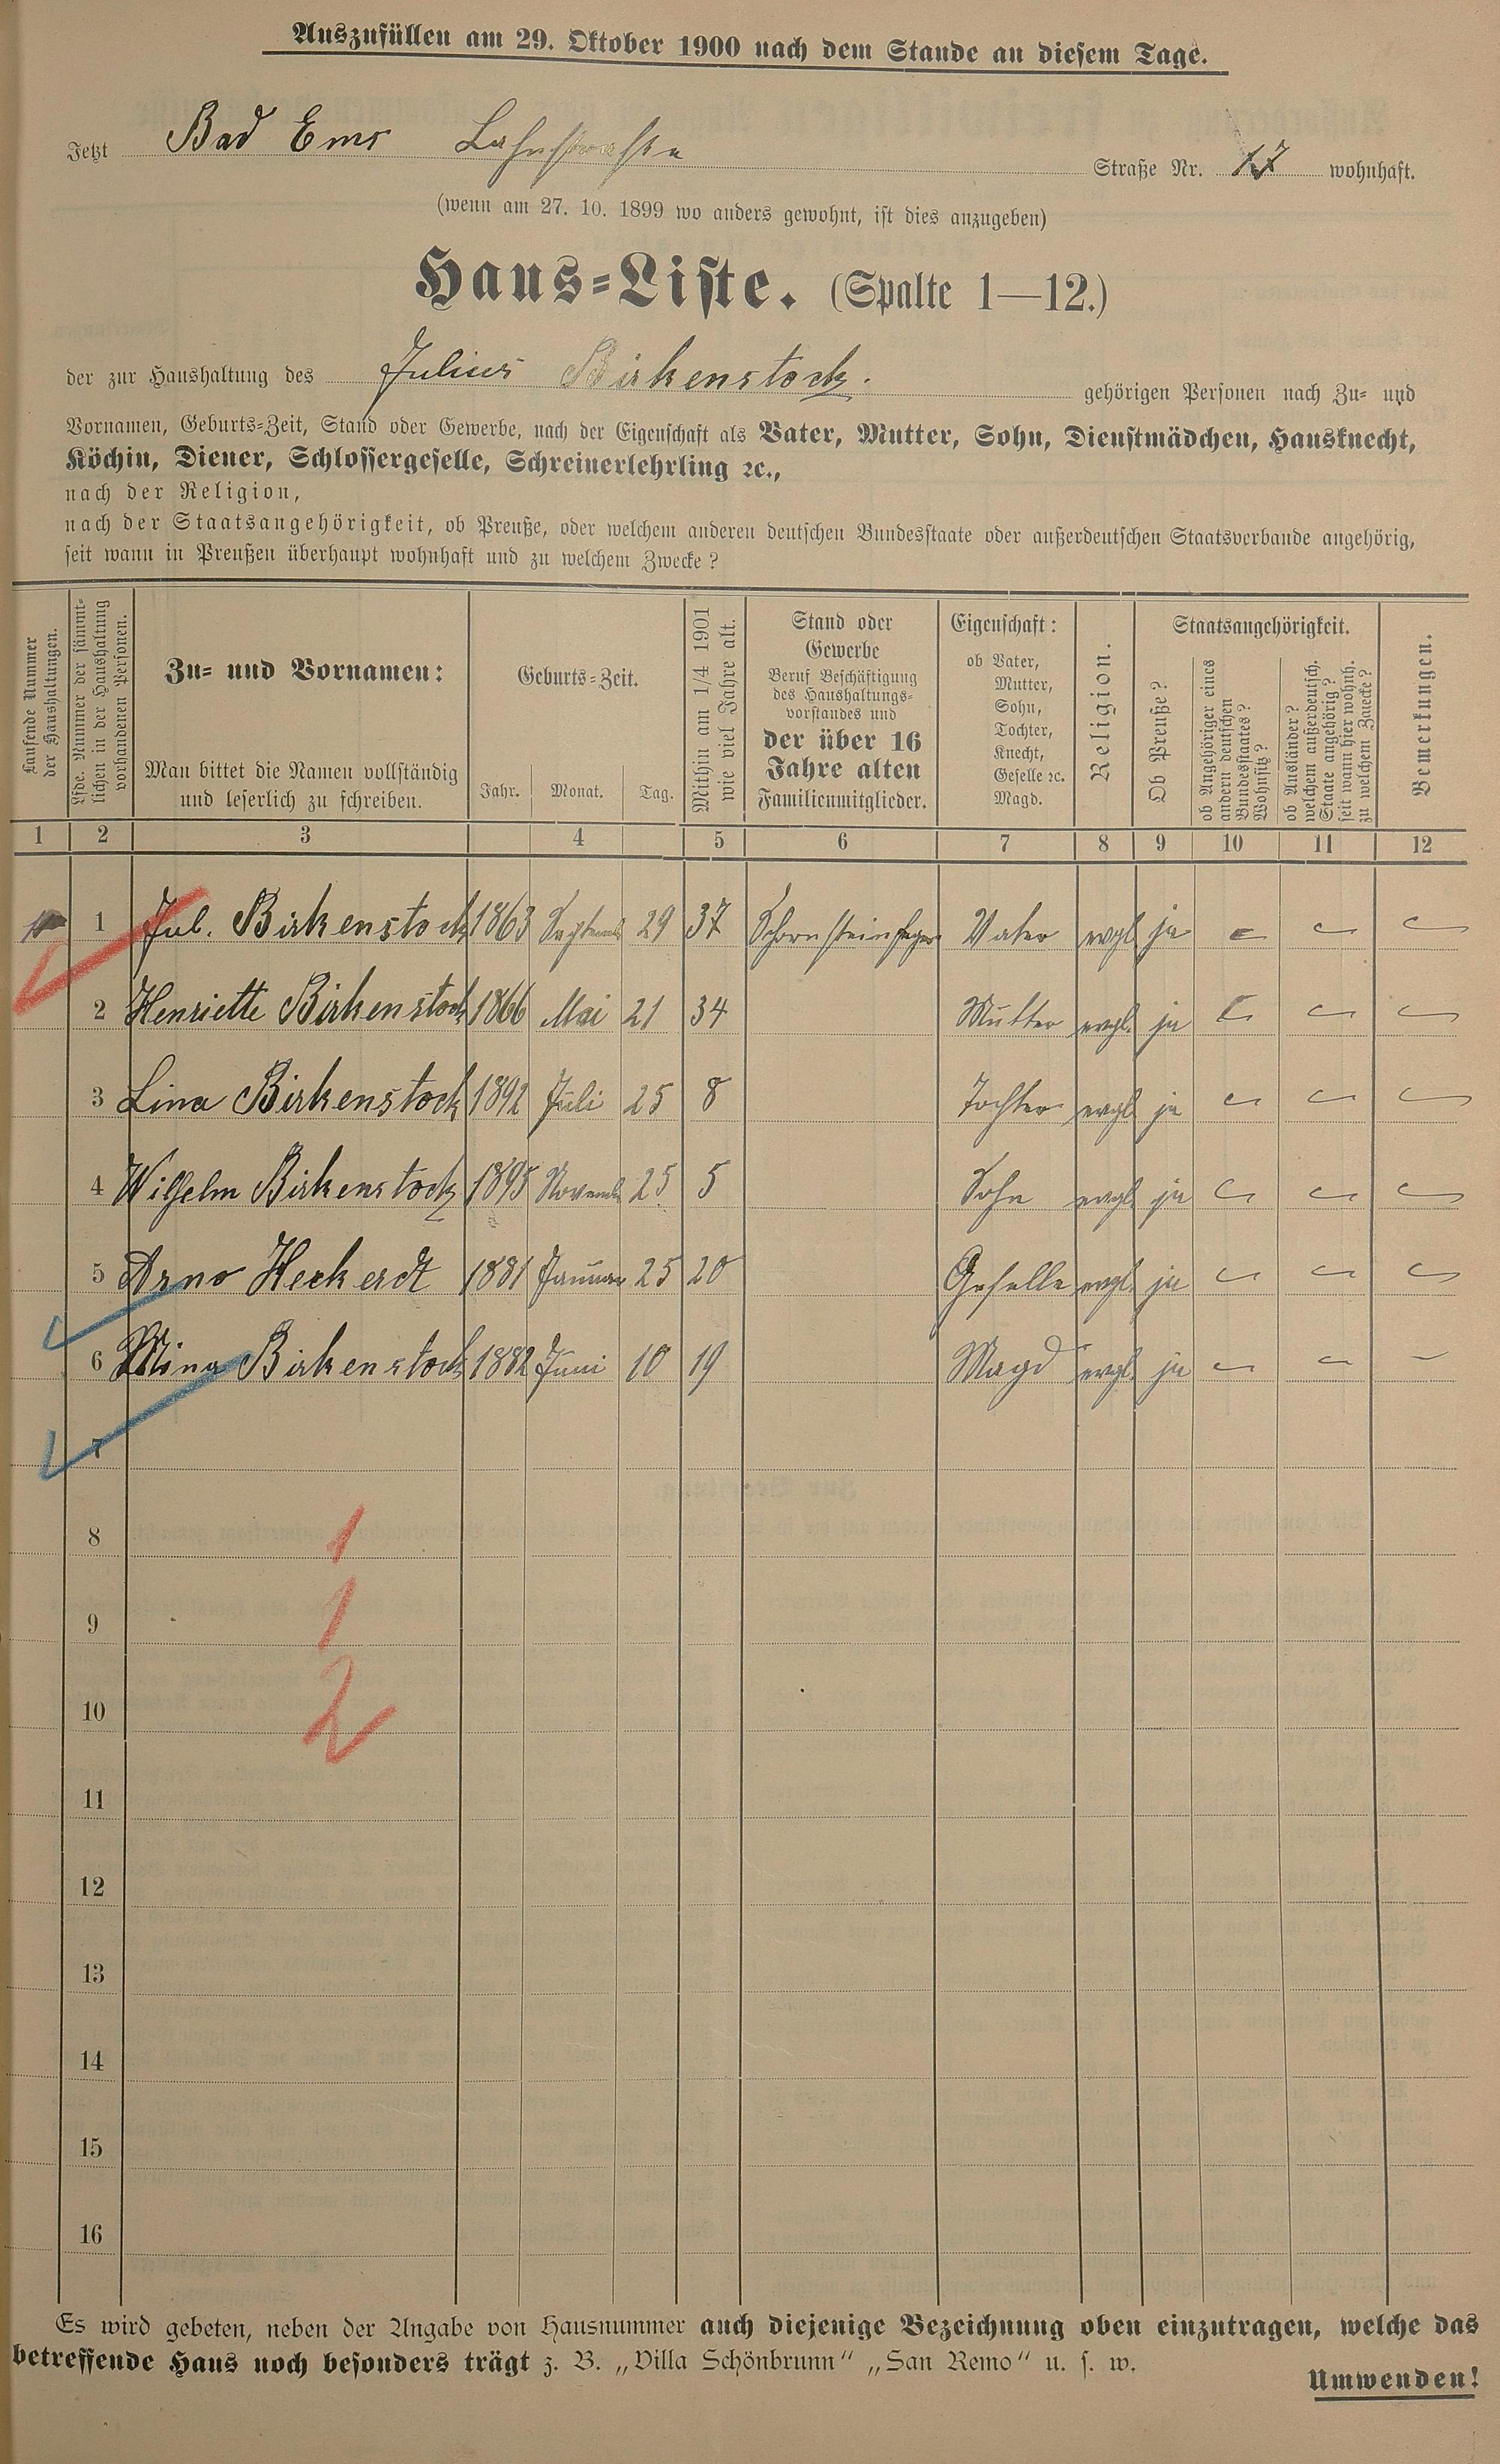 Auszufüllen am 29. Oktober 1900 nach dem Stande an diesem Tage.
Jetzt Bad Ems Lahnstraße Straße Nr. 17 wohnhaft.
(wenn am 27. 10. 1899 wo anders gewohnt, ist dies anzugeben)
Haus-Liste. (Spalte 1—12.)
der zur Haushaltung des Julius Birkenstock. gehörigen Personen nach Zu- und
Vornamen, Geburts-Zeit, Stand oder Gewerbe, nach der Eigenschaft als Vater, Mutter, Sohn, Dienstmädchen, Hausknecht,
Köchin, Diener, Schlossergeselle, Schreinerlehrling ꝛc.,
nach der Religion,
nach der Staatsangehörigkeit, ob Preuße, oder welchem anderen deutschen Bundesstaate oder außerdeutschen Staatsverbande angehörig,
seit wann in Preußen überhaupt wohnhaft und zu welchem Zwecke?
Laufende Nummer
der Haushaltungen.
Lfde. Nummer der sämmt-
lichen in der Haushaltung
vorhandenen Personen.
Zu- und Vornamen:
Man bittet die Namen vollständig
und leserlich zu schreiben.
Geburts-Zeit.
Jahr. Monat. Tag.
Mithin am 1/4 1901
wie viel Jahre alt.
Stand oder
Gewerbe
Beruf Beschäftigung
des Haushaltungs-
vorstandes und
der über 16
Jahre alten
Familienmitglieder.
Eigenschaft:
ob Vater,
Mutter,
Sohn,
Tochter,
Knecht,
Geselle ꝛc.
Magd.
Religion.
Staatsangehörigkeit.
Ob Preuße?
ob Angehöriger eines
andern deutschen
Bundesstaates?
Wohnsitz?
ob Ausländer?
welchem außerdeutsch.
Staate angehörig?
seit wann hier wohnh.
zu welchem Zwecke?
Bemerkungen.
1 2 3 4 5 6 7 8 9 10 11 12
1 Jul. Birkenstock 1863 September 29 37 Schornsteinfeger Vater evgl ja
2 Henriette Birkenstock 1866 Mai 21 34 Mutter evgl. ja
3 Lina Birkenstock 1892 Juli 25 8 Tochter evgl ja
4 Wilhelm Birkenstock 1895 November 25 5 Sohn evgl ja
5 Arno Heckerdt 1881 Januar 25 20 Geselle evgl. ja
6 Mina Birkenstock 1882 Juni 10 19 Magd evgl. ja
7
8 1
9 1
10 2
11
12
13
14
15
16
Es wird gebeten, neben der Angabe von Hausnummer auch diejenige Bezeichnung oben einzutragen, welche das
betreffende Haus noch besonders trägt z. B. „Villa Schönbrunn“ „San Remo“ u. s. w.
Umwenden!